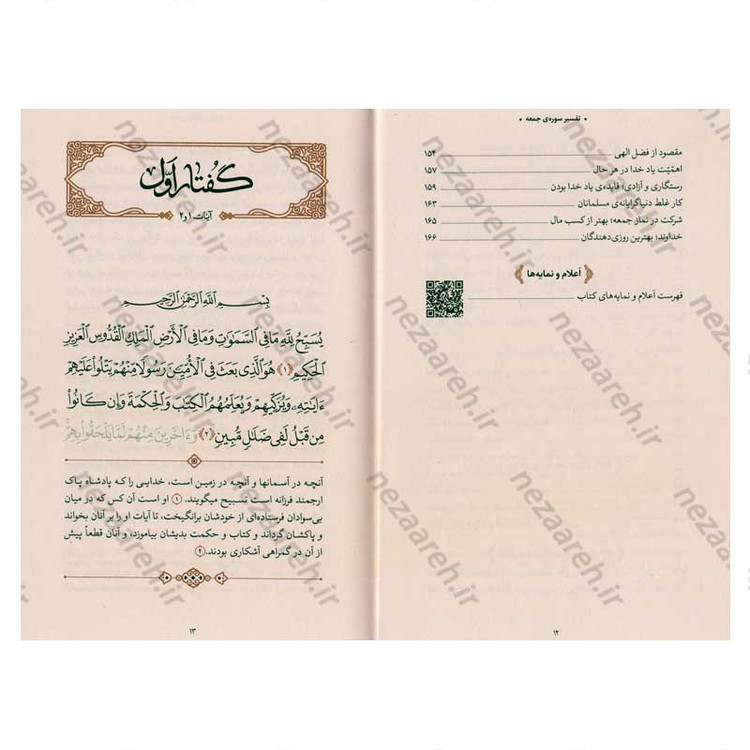 • تفسیر سوره‌ی جمعه •
مقصود از فضل الهی ۱۵۴
اهمّیّت یاد خدا در هر حال ۱۵۷
رستگاری و آزادی؛ فایده‌ی یاد خدا بودن ۱۵۹
کار غلط دنیاگرایانه‌ی مسلمانان ۱۶۳
شرکت در نماز جمعه؛ بهتر از کسب مال ۱۶۵
خداوند؛ بهترین روزی‌دهندگان ۱۶۶
اعلام و نمایه‌ها
فهرست اعلام و نمایه‌های کتاب
۱۲
گفتار اوّل
آیات ۱ و ۲
بِسْمِ اللَّهِ الرَّحْمَٰنِ الرَّحِيمِ
يُسَبِّحُ لِلَّهِ مَا فِي السَّمَٰوَٰتِ وَمَا فِي الْأَرْضِ الْمَلِكِ الْقُدُّوسِ الْعَزِيزِ
الْحَكِيمِ ﴿١﴾ هُوَ الَّذِي بَعَثَ فِي الْأُمِّيِّينَ رَسُولًا مِّنْهُمْ يَتْلُوا عَلَيْهِمْ
ءَايَٰتِهِۦ وَيُزَكِّيهِمْ وَيُعَلِّمُهُمُ الْكِتَٰبَ وَالْحِكْمَةَ وَإِن كَانُوا
مِن قَبْلُ لَفِي ضَلَٰلٍ مُّبِينٍ ﴿٢﴾ وَءَاخَرِينَ مِنْهُمْ لَمَّا يَلْحَقُوا بِهِمْ
آنچه در آسمانها و آنچه در زمین است، خدایی را که پادشاه پاک
ارجمند فرزانه است تسبیح میگویند. (۱) او است آن کس که در میان
بی‌سوادان فرستاده‌ای از خودشان برانگیخت، تا آیات او را بر آنان بخواند
و پاکشان گرداند و کتاب و حکمت بدیشان بیاموزد، و آنان قطعاً پیش
از آن در گمراهی آشکاری بودند. (۲)
۱۳
nezaareh.ir